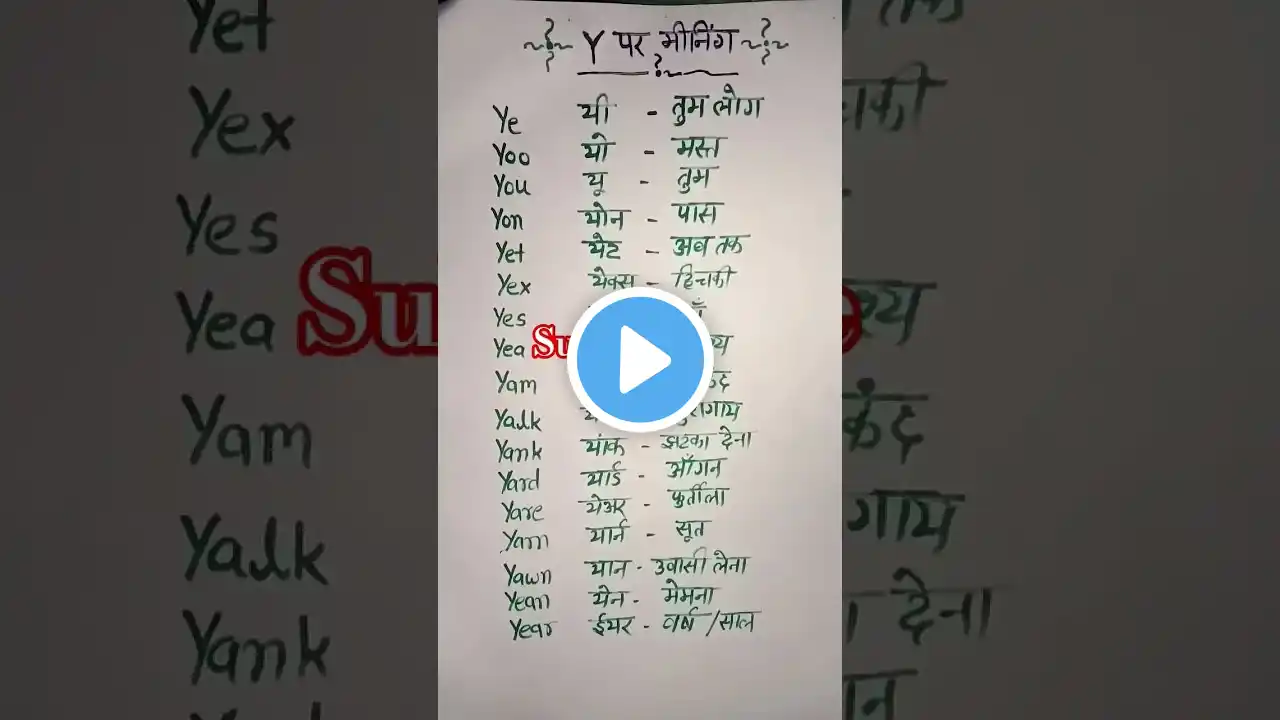 Y पर मीनिंग
Ye यी - तुम लोग
Yoo यो - मस्त
You यू - तुम
Yon योन - पास
Yet येट - अब तक
Yex येक्स - हिचकी
Yes
Yea Su
Yam
Yalk
Yank यांक - झटका देना
Yard यार्ड - आँगन
Yare येअर - फुर्तीला
Yarn यार्न - सूत
Yawn यान - उवासी लेना
Yean येन - मेमना
Year ईयर - वर्ष /साल